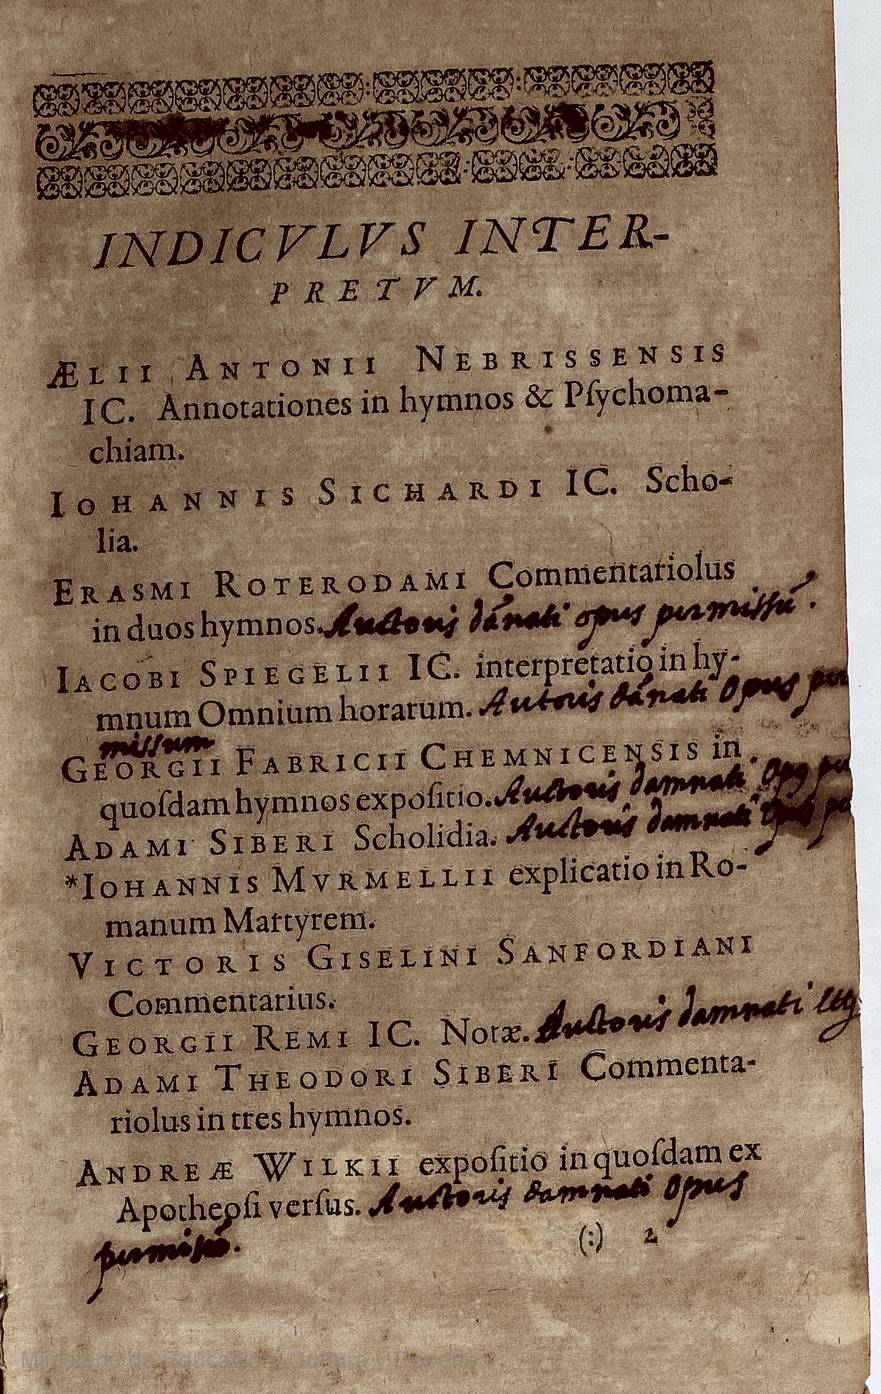 INDICVLVS INTER-
PRETVM.
ÆLII ANTONII NEBRISSENSIS
IC. Annotationes in hymnos & Pſychoma-
chiam.
IOHANNIS SICHARDI IC. Scho-
lia.
ERASMI ROTERODAMI Commentariolus
in duos hymnos. Auctoris dānati opus permissū.
IACOBI SPIEGELII IC. interpretatio in hy-
mnum Omnium horarum. Autoris dānati Opus per
missum
GEORGII FABRICII CHEMNICENSIS in
quoſdam hymnos expoſitio. Auctoris damnati Opꝰ
ADAMI SIBERI Scholidia. Auctoris damnati Opus
*IOHANNIS MVRMELLII explicatio in Ro-
manum Martyrem.
VICTORIS GISELINI SANFORDIANI
Commentarius.
GEORGII REMI IC. Notæ. Auctoris damnati
ADAMI THEODORI SIBERI Commenta-
riolus in tres hymnos.
ANDREÆ WILKII expoſitio in quoſdam ex
Apotheoſi verſus. Auctoris damnati Opus
permissū.
(:) 2